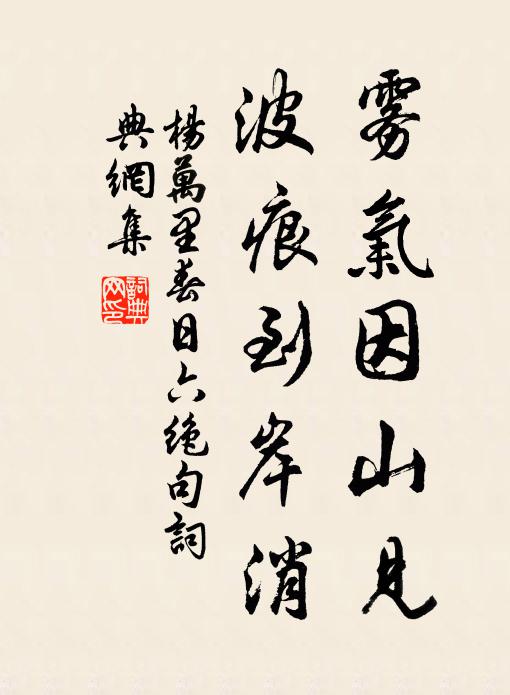 雾氣因山見
波痕到岸消
楊萬里春日六絶句詞
典網集
詞典網印